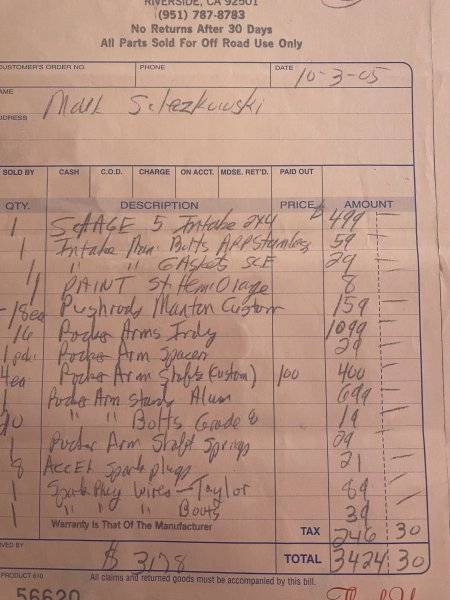 RIVERSIDE, CA 92501
(951) 787-8783
No Returns After 30 Days
All Parts Sold For Off Road Use Only
CUSTOMER'S ORDER NO. PHONE DATE 10-3-05
NAME Mark
ADDRESS
SOLD BY CASH C.O.D. CHARGE ON ACCT. MDSE. RET'D. PAID OUT
QTY. DESCRIPTION PRICE AMOUNT
1 StAGE 5 Intake 2x4 $ 499 —
1 Intake Man. Bolts ARP Stainless 59 —
1 " " GASkets SCE 29 —
1 PAINT St Hemi Orange 8 —
18ea Pushrods Manton Custom 159 —
16 Rocker Arms Indy 1099 —
1 Rocker Arm Spacer 29 —
4ea Rocker Arm Shafts (Custom) 100 400 —
1 Rocker Arm stands Alum 699 —
20 " " Bolts Grade 8 19 —
1 Rocker Arm Shaft Springs 29
8 AccEl Spark plugs 21 —
1 Spark Plug Wires — Taylor 89 —
1 " " Boots 39 —
Warranty Is That Of The Manufacturer TAX 246 30
$ 3178 TOTAL 3424 30
PRODUCT 610 All claims and returned goods must be accompanied by this bill.
56620